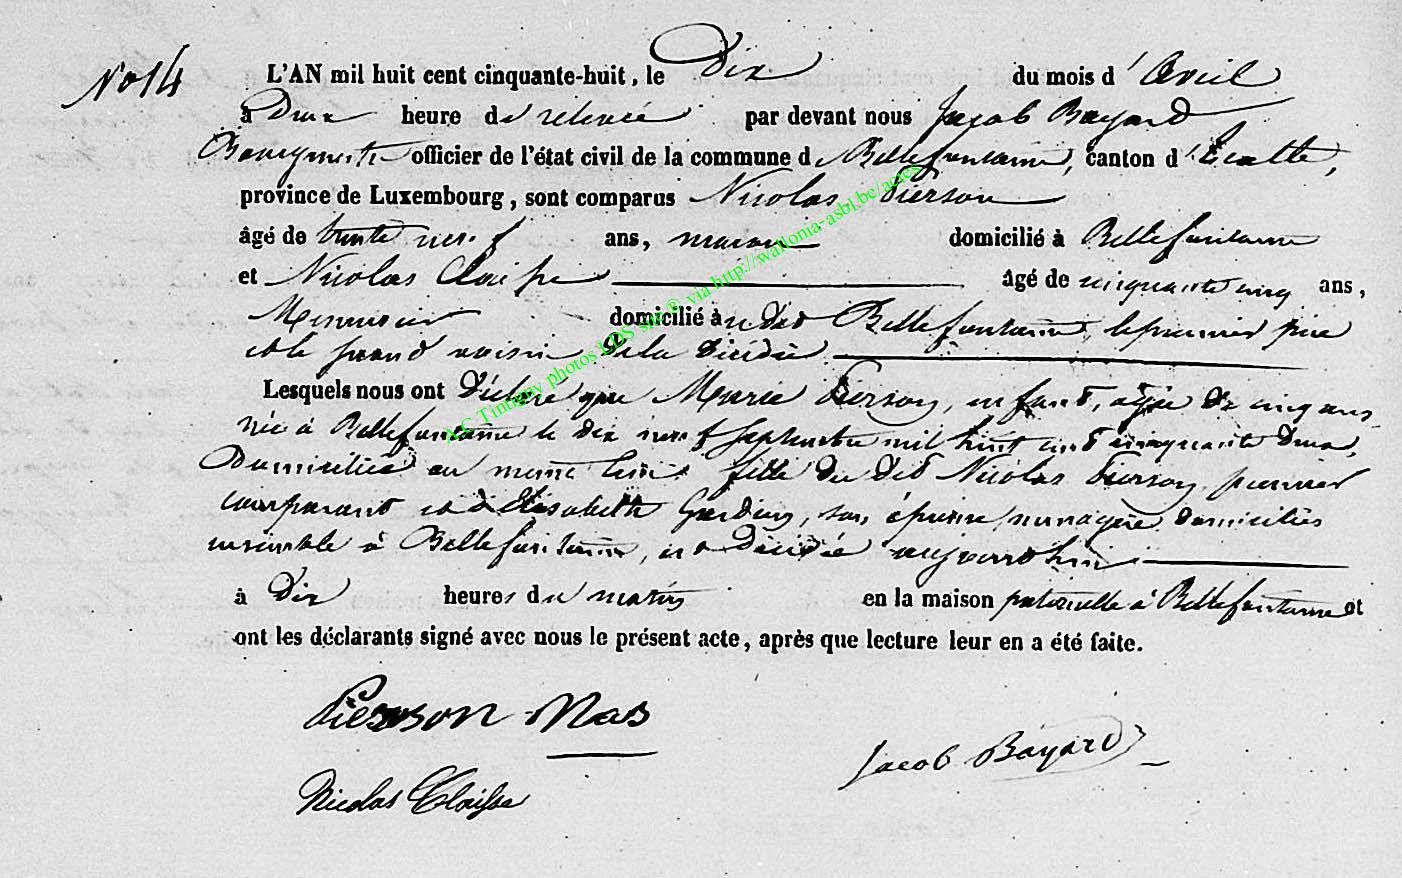 No 14
L'AN mil huit cent cinquante-huit, le Dix du mois d'Avril
à Deux heure de relevée par devant nous Jacob Bayard
Bourgmestre officier de l'état civil de la commune de Bellefontaine, canton d'Etalle,
province de Luxembourg, sont comparus Nicolas Pierson
âgé de trente neuf ans, maçon domicilié à Bellefontaine
et Nicolas Claisse âgé de cinquante cinq ans,
Menuisier domicilié au dit Bellefontaine, le premier père
et le second voisin de la décédée
Lesquels nous ont Déclaré que Marie Pierson, enfant, agée de cinq ans
née à Bellefontaine le dix neuf Septembre mil huit cent cinquante deux,
Domiciliée au même lieu, fille du dit Nicolas Pierson premier
comparant et d'Elisabeth Gardeur, son épouse, ménagère, domiciliés
ensemble à Bellefontaine, est décédée aujourd'hui
à Dix heures du matin en la maison paternelle à Bellefontaine et
ont les déclarants signé avec nous le présent acte, après que lecture leur en a été faite.
Pierson Nas
Jacob Bayard
Nicolas Claisse
A.C Tintigny photos LDS site® via http://wallonia-asbl.be/actes